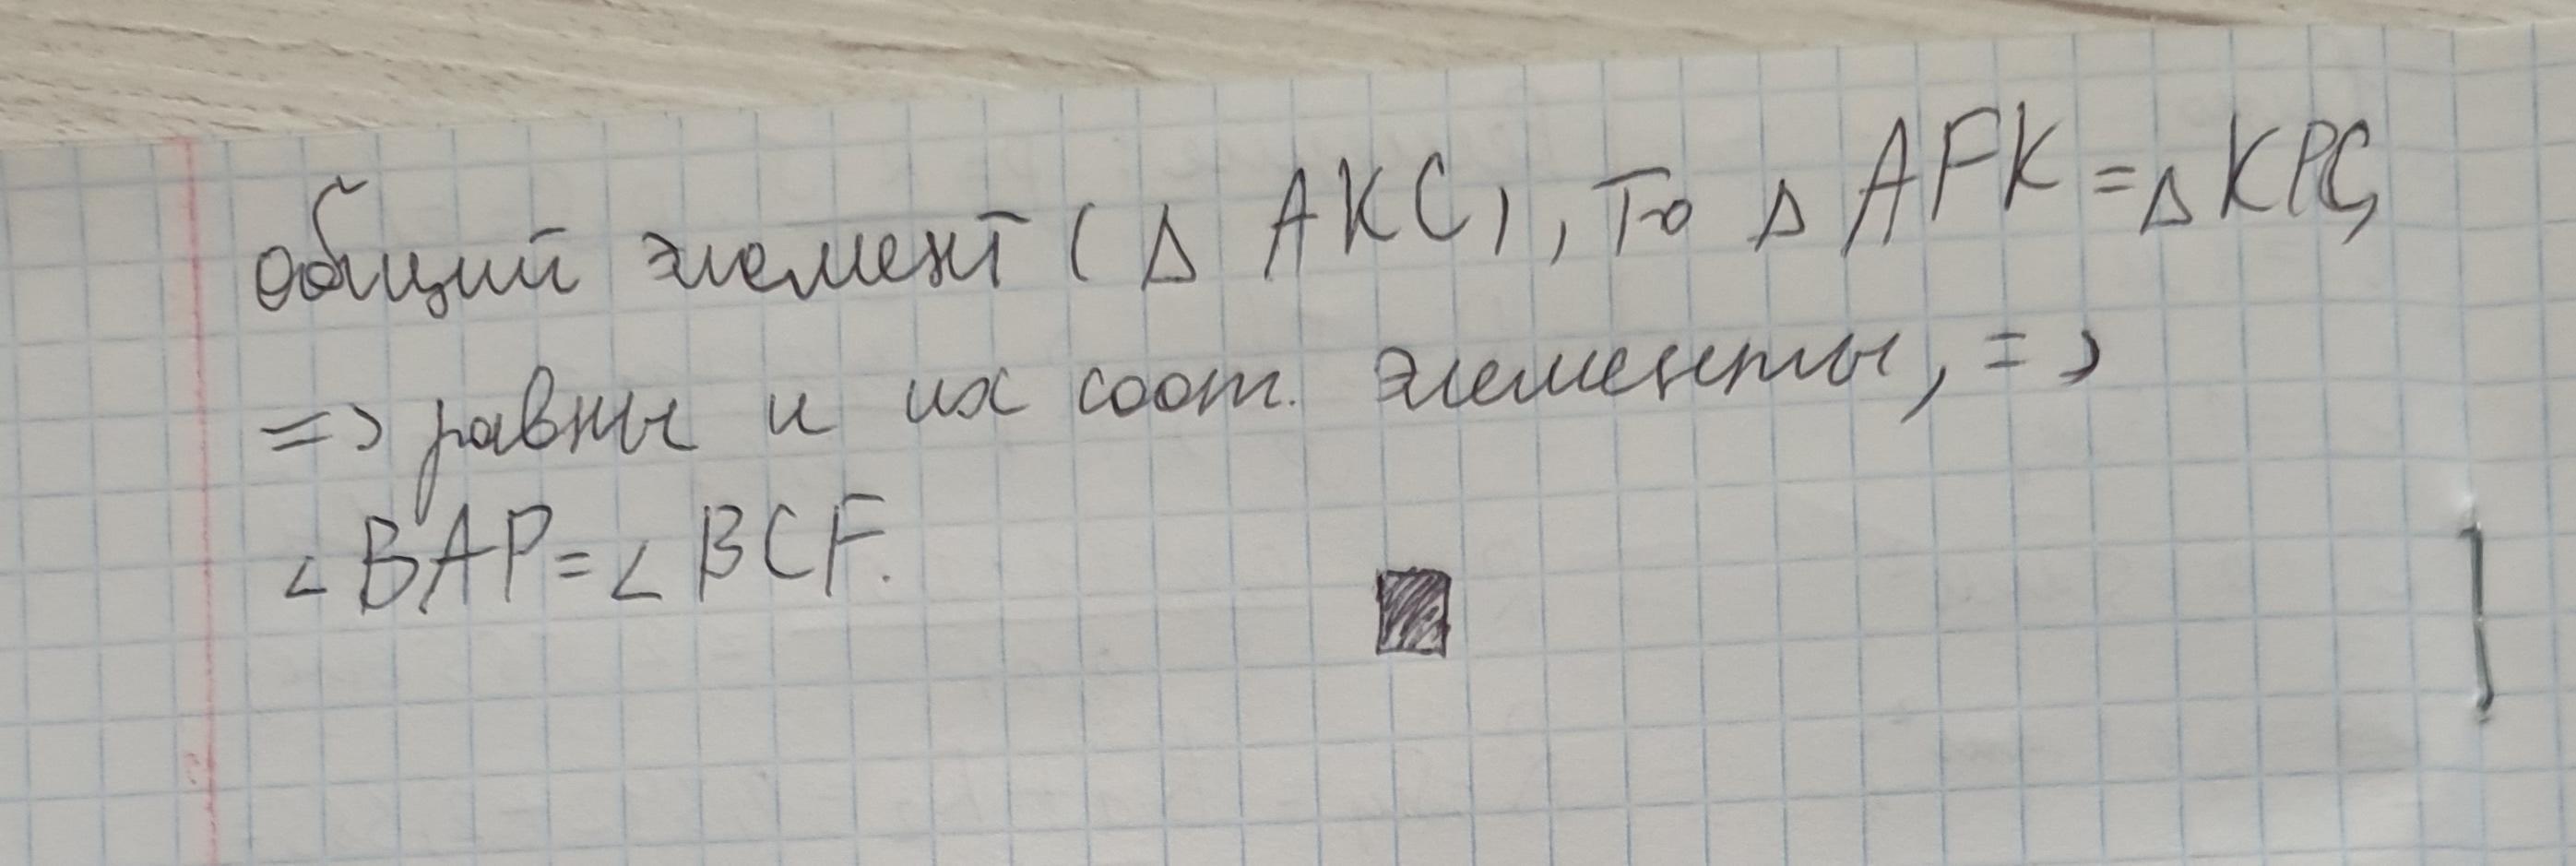 общий элемент (△ AKC), то △ AFK = △ KPC,
=> равны и их соот. элементы, =>
∠BAP = ∠ BCF.